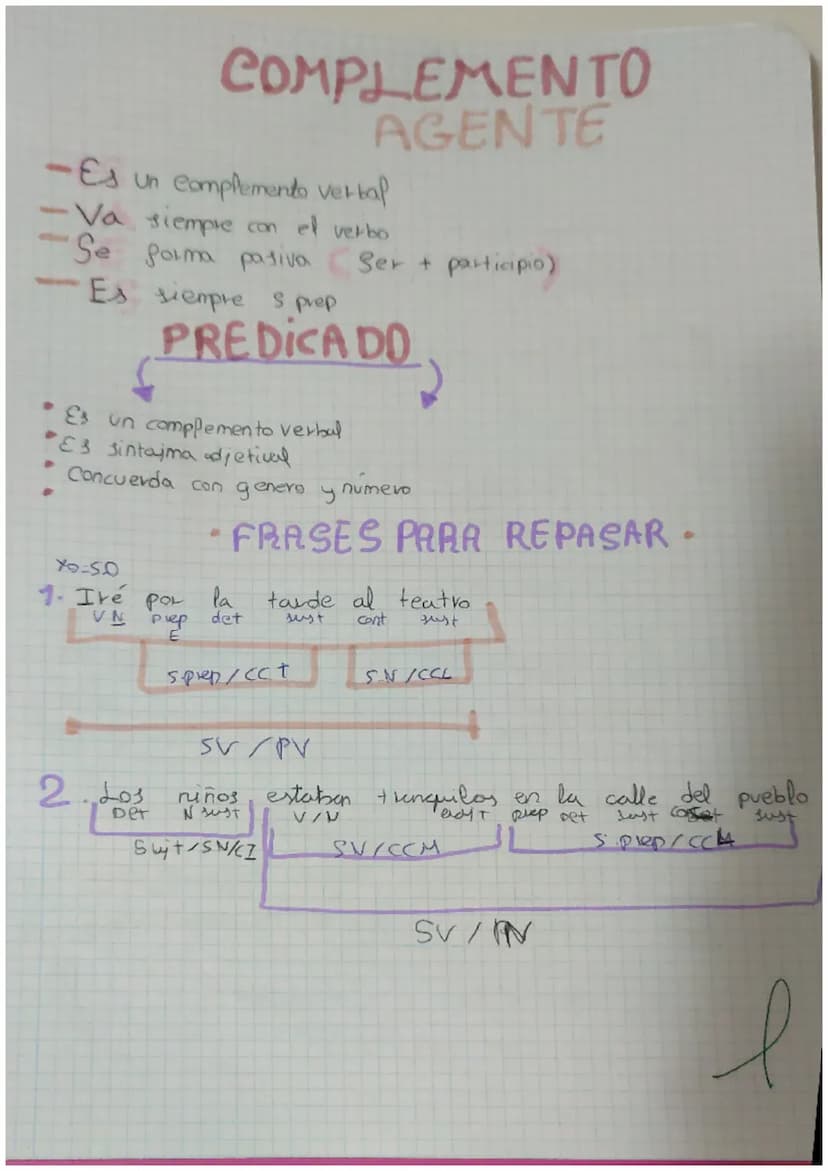 COMPLEMENTO
AGENTE
- Es un complemento verbal
- Va siempre con el verbo
- Se forma pasiva (Ser + participio)
- Es siempre s prep
PREDICADO
• Es un complemento verbal
• Es sintajma adjetival
• Concuerda con genero y número
• FRASES PARA REPASAR •
Yo-S.O
1. Iré por la tarde al teatro
VN prep det sust cont sust
E
S.prep/CCT S.N/CCL
SV/PV
2. Los niños estaban trunquilos en la calle del pueblo
Det N sust V/N adjt prep Det sust sust
Sujt/SN/CI SV/CCM S.prep/CCL
SV/PV